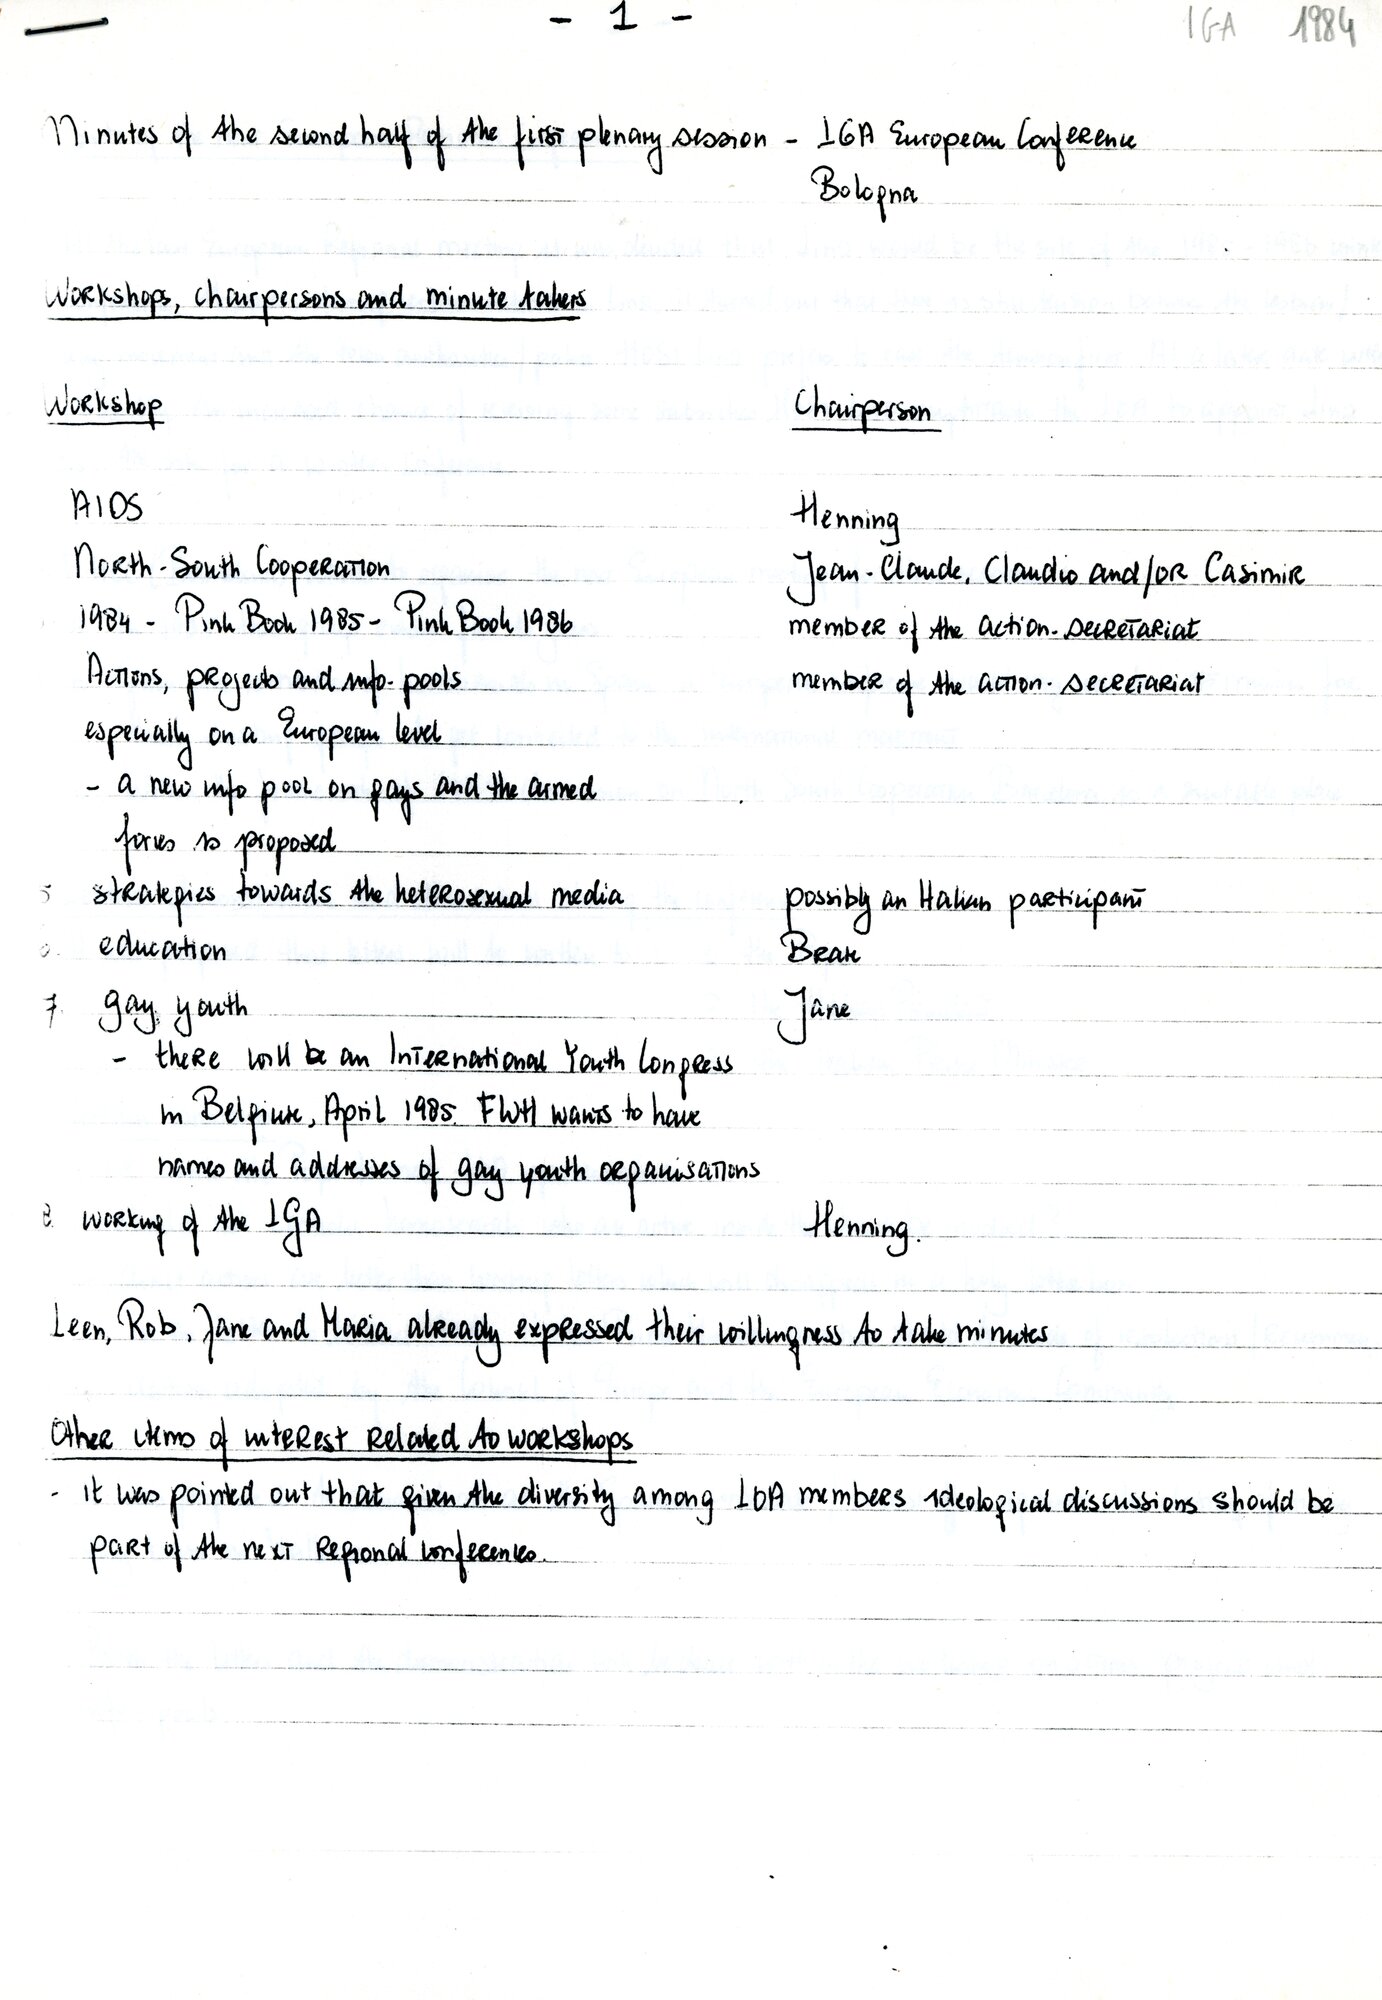 - 1 -
IGA 1984
Minutes of the second half of the first plenary session - IGA European Conference
Bologna
Workshops, chairpersons and minute takers
Workshop Chairperson
AIDS Henning
North-South Cooperation Jean-Claude, Claudio and/or Casimir
1984 - Pink Book 1985 - Pink Book 1986 member of the action-secretariat
Actions, projects and info-pools member of the action-secretariat
especially on a European level
- a new info pool on gays and the armed
forces is proposed
5 strategies towards the heterosexual media possibly an Italian participant
6. education Brah
7. gay youth Jane
- there will be an International Youth Congress
in Belgium, April 1985. FWH wants to have
names and addresses of gay youth organisations
8. working of the IGA Henning.
Leen, Rob, Jane and Maria already expressed their willingness to take minutes
Other items of interest related to workshops
- it was pointed out that given the diversity among IGA members ideological discussions should be
part of the next regional conferences.